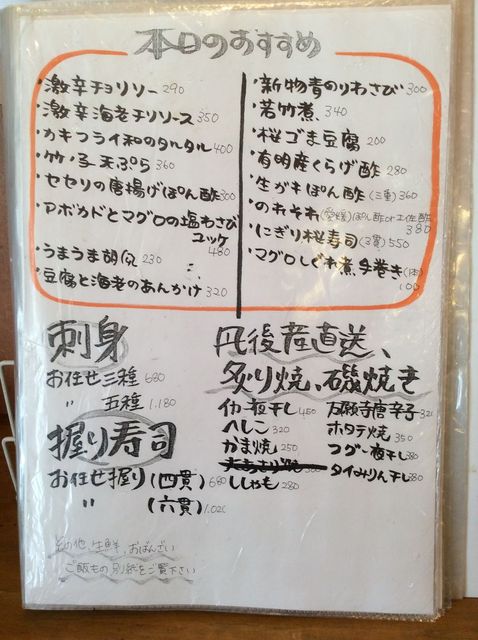 本日のおすすめ
・激辛チョリソー 290
・激辛海老チリソース 350
・カキフライ和のタルタル 400
・竹の子天ぷら 360
・セセリの唐揚げぽん酢 300
・アボカドとマグロの塩わさび
ユッケ 480
・うまうま胡瓜 230
・豆腐と海老のあんかけ 320
・新物青のりわさび 300
・若竹煮 340
・桜ごま豆腐 200
・有明産くらげ酢 280
・生ガキぽん酢 (三重) 360
・のれそれ (愛媛) ぽん酢or土佐酢
380
・にぎり桜寿司 (3貫) 550
・マグロしぐれ煮手巻き
100
刺身
お任せ三種 680
〃 五種 1.180
握り寿司
お任せ握り (四貫) 680
〃 (六貫) 1.020
丹後産直送、
炙り焼、磯焼き
イカ一夜干し 450
へしこ 320
かま焼 250
ししゃも 280
万願寺唐辛子 320
ホタテ焼 350
フグ一夜干し 380
タイみりん干し 380
その他、生鮮、おばんざい
ご飯もの別紙をご覧下さい